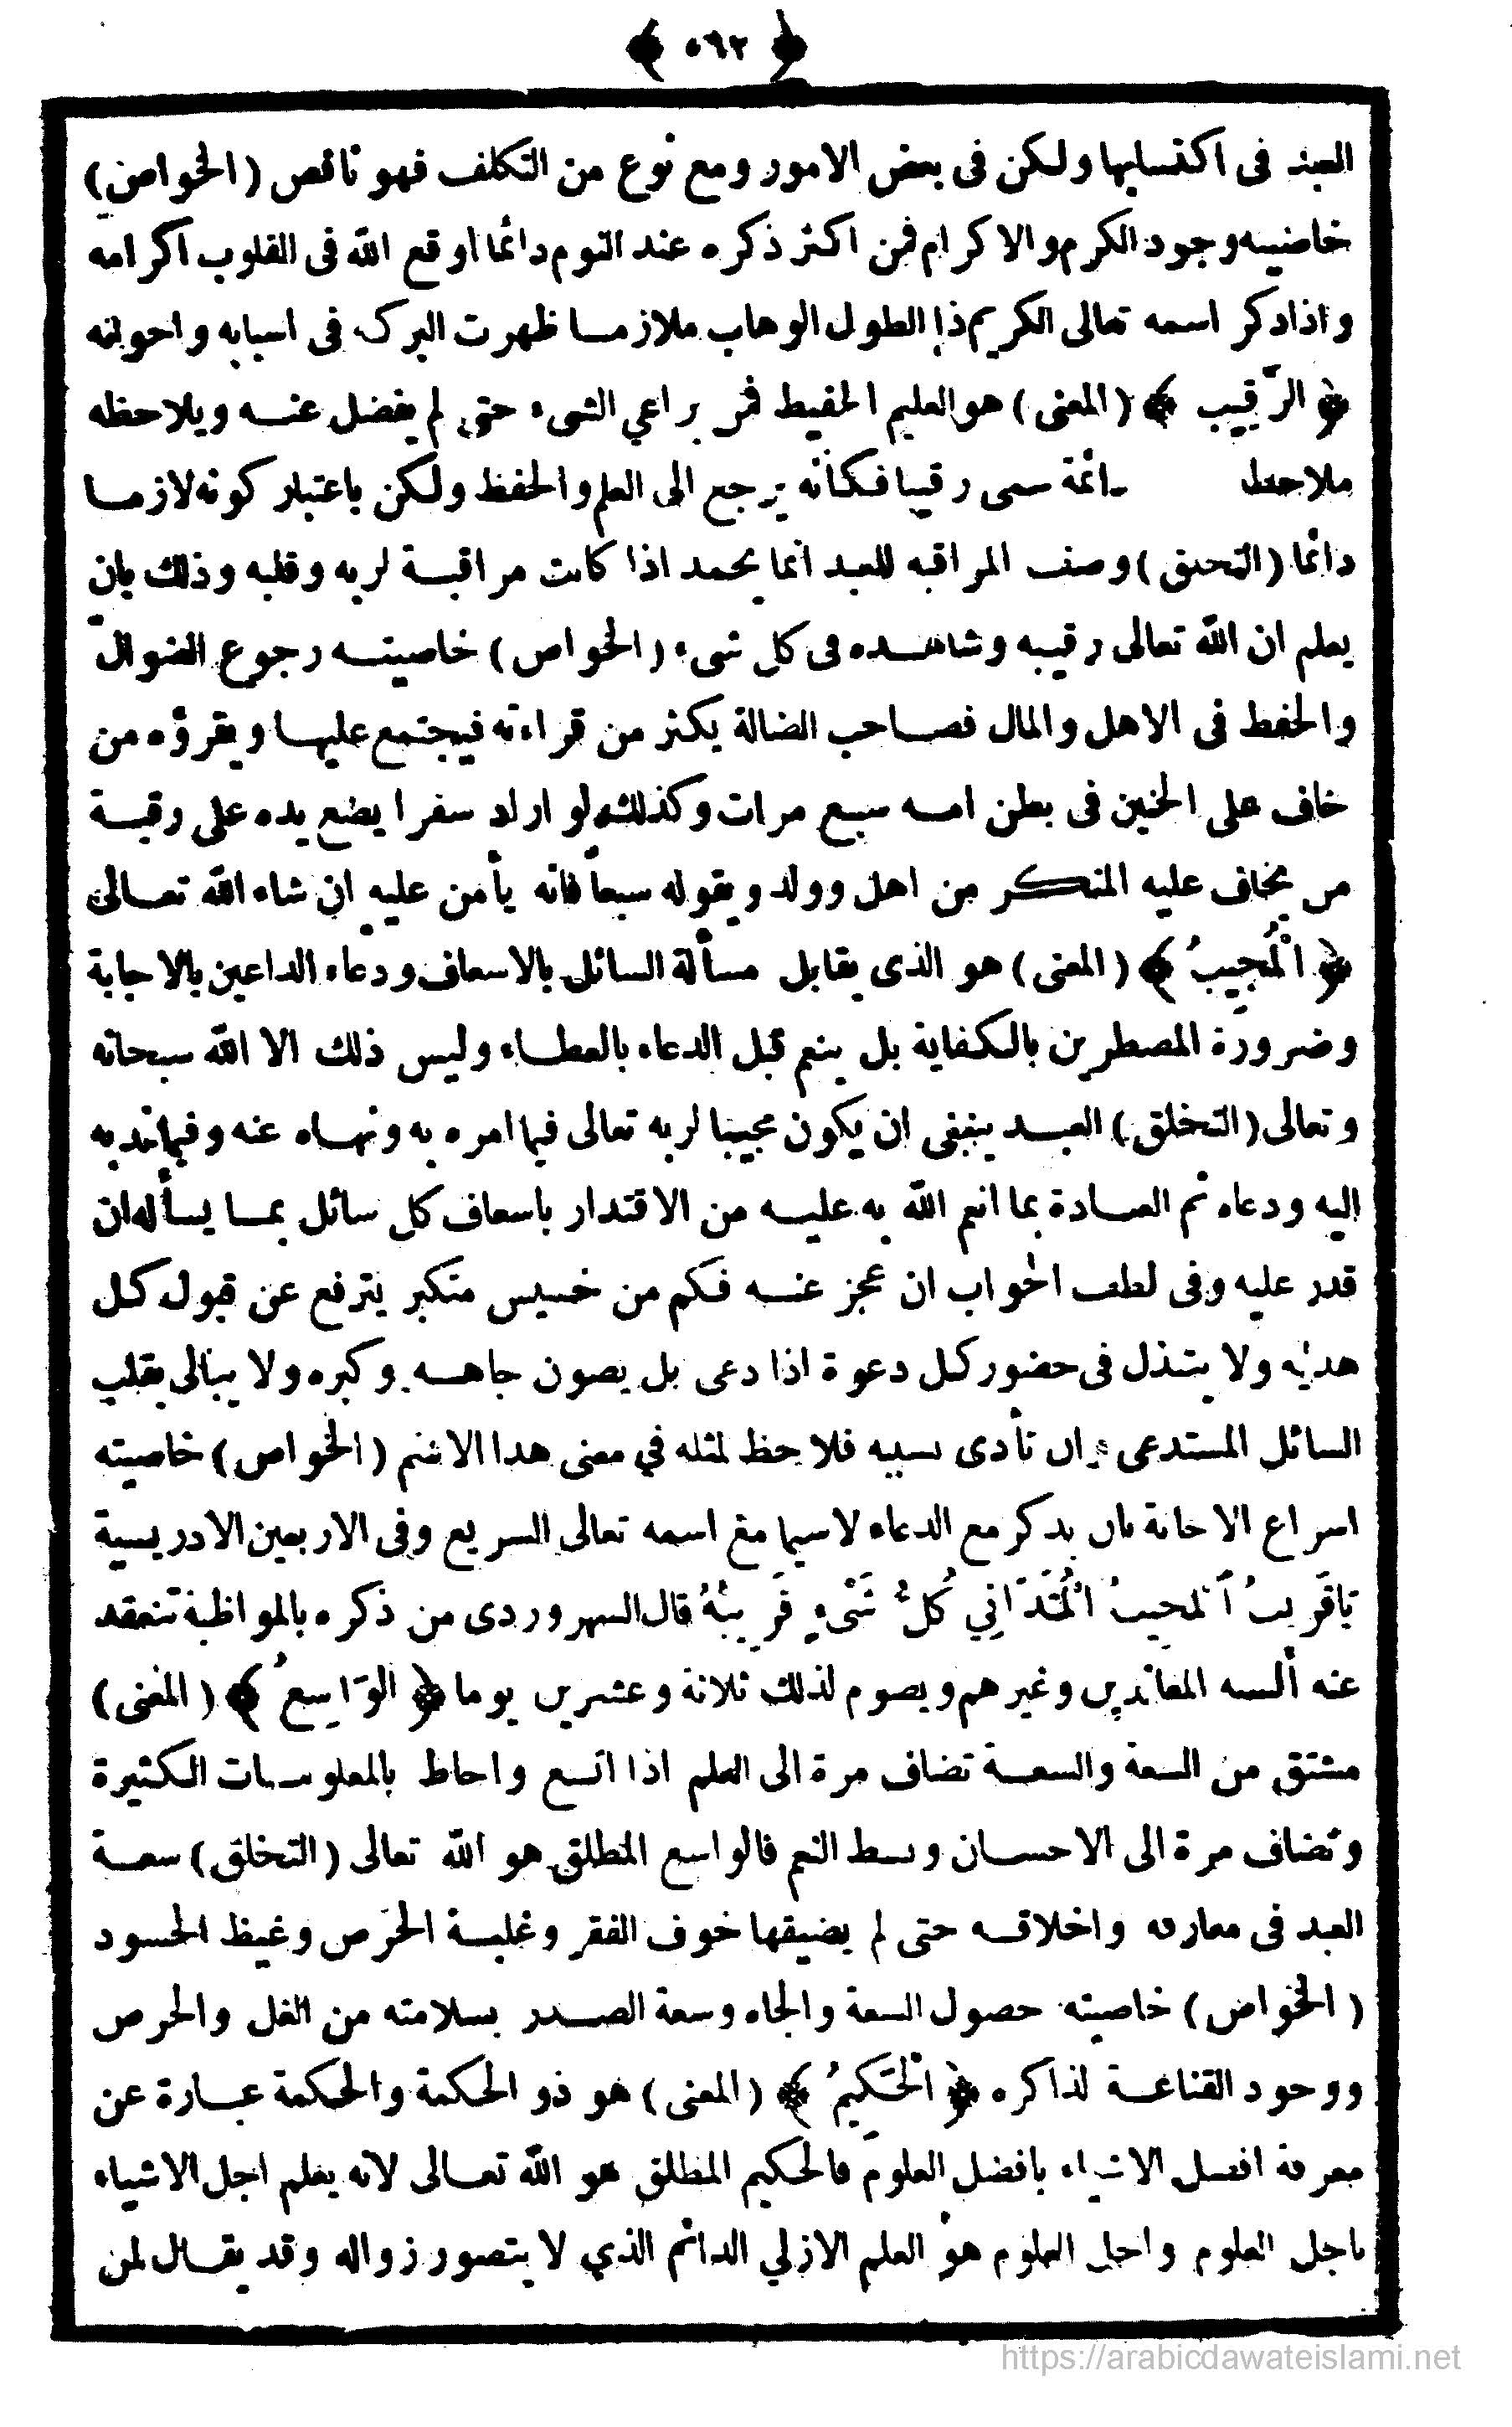 ﴿ ٥٦٢ ﴾
العبد فى اكتسابها ولكن فى بعض الامور ومع نوع من التكلف فهو ناقص (الخواص)
خاصيته وجود الكرم والاكرام فمن اكثر ذكره عند النوم دائما اوقع الله فى القلوب اكرامه
واذا ذكر اسمه تعالى الكريم ذا الطول الوهاب ملازما ظهرت البرك فى اسبابه واحواله
﴿ الرَّقِيب ﴾ (المعنى) هو العليم الحفيظ فمن يراعي الشىء حتى لم يغفل عنه ويلاحظه
ملاحظ دائمة سمى رقيبا فكأنه يرجع الى العلم والحفظ ولكن باعتبار كونه لازما
دائما (التحلق) وصف المراقبه للعبد انما يحمد اذا كانت مراقبة لربه وقلبه وذلك بان
يعلم ان الله تعالى رقيبه وشاهده فى كل شىء (الخواص) خاصيته رجوع الضوالّ
والحفظ فى الاهل والمال فصاحب الضالة يكثر من قراءته فيجتمع عليها ويقرؤه من
خاف على الجنين فى بطن امه سبع مرات وكذلك لو اراد سفرا يضع يده على رقبة
من يخاف عليه المنكر من اهل وولد ويقوله سبعاً فانه يأمن عليه ان شاء الله تعالى
﴿ الْمُجِيبُ ﴾ (المعنى) هو الذى يقابل مسألة السائل بالاسعاف ودعاء الداعين بالاجابة
وضرورة المضطرين بالكفاية بل ينعم قبل الدعاء بالعطاء وليس ذلك الا الله سبحانه
وتعالى (التخلق) العبد ينبغى ان يكون مجيبا لربه تعالى فيما امره به ونهاه عنه وفيما ندبه
اليه ودعاه ثم العبادة بما انعم الله به عليه من الاقتدار باسعاف كل سائل بما يسأله ان
قدر عليه وفى لطف الجواب ان عجز عنه فكم من خسيس متكبر يترفع عن قبول كل
هديه ولا يتذل فى حضور كل دعوة اذا دعى بل يصون جاهه وكبره ولا يبالى بقلب
السائل المستدعى وان تأذى بسببه فلا حظ لمثله في معنى هذا الاسم (الخواص) خاصيته
اسراع الاجابة بان يذكر مع الدعاء لاسيما مع اسمه تعالى السريع وفى الاربعين الادريسية
يَاقَرِيبُ الْمُجِيبُ الْمُتَدَانِي كُلَّ شَىْءٍ قُرْبُهُ قال السهروردى من ذكره بالمواظبة تنعقد
عنه ألسنه المعاندين وغيرهم ويصوم لذلك ثلاثة وعشرين يوما ﴿ الوَاسِعُ ﴾ (المعنى)
مشتق من السعة والسعة تضاف مرة الى العلم اذا اتسع واحاط بالمعلومات الكثيرة
وتضاف مرة الى الاحسان وبسط النعم فالواسع المطلق هو الله تعالى (التخلق) سعة
العبد فى معارفه واخلاقه حتى لم يضيقها خوف الفقر وغلبة الحرص وغيظ الحسود
(الخواص) خاصيته حصول السعة والجاه وسعة الصدر بسلامته من الغل والحرص
ووجود القناعة لذاكره ﴿ الْحَكِيمُ ﴾ (المعنى) هو ذو الحكمة والحكمة عبارة عن
معرفة افضل الاشياء بافضل العلوم فالحكيم المطلق هو الله تعالى لانه يعلم اجل الاشياء
باجل العلوم واجل العلوم هو العلم الازلي الدائم الذي لا يتصور زواله وقد يقال لمن
https://arabicdawateislami.net